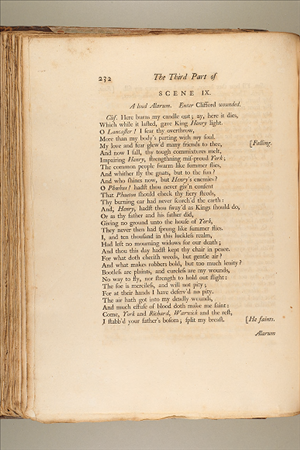 232 The Third Part of
SCENE IX.
A loud Alarum. Enter Clifford wounded.
Clif. Here burns my candle out; ay, here it dies,
Which while it lasted, gave King Henry light.
O Lancaster! I fear thy overthrow,
More than my body's parting with my soul.
My love and fear glew'd many friends to thee,
And now I fall, thy tough commixtures melt, [Falling.
Impairing Henry, strength'ning mis-proud York;
The common people swarm like summer flies,
And whither fly the gnats, but to the sun?
And who shines now, but Henry's enemies?
O Phœbus! hadst thou never giv'n consent
That Phaeton should check thy fiery steeds,
Thy burning car had never scorch'd the earth:
And, Henry, hadst thou sway'd as Kings should do,
Or as thy father and his father did,
Giving no ground unto the house of York,
They never then had sprung like summer flies.
I, and ten thousand in this luckless realm,
Had left no mourning widows for our death;
And thou this day hadst kept thy chair in peace.
For what doth cherish weeds, but gentle air?
And what makes robbers bold, but too much lenity?
Bootless are plaints, and cureless are my wounds,
No way to fly, nor strength to hold out flight:
The foe is merciless, and will not pity;
For at their hands I have deserv'd no pity.
The air hath got into my deadly wounds,
And much effuse of blood doth make me faint:
Come, York and Richard, Warwick and the rest,
I stabb'd your father's bosom; split my breast. [He faints.
Alarum